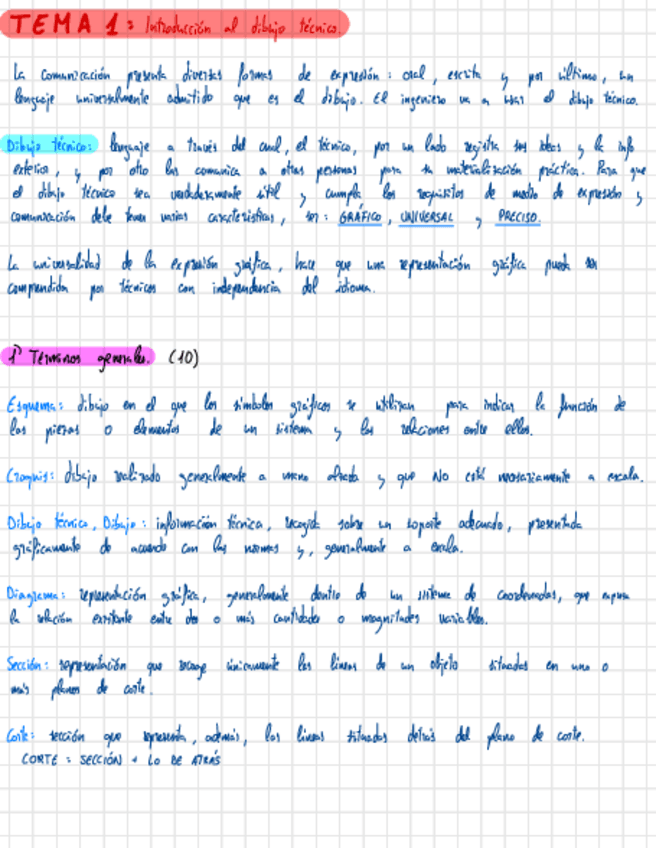 TEMA 1: Introducción al dibujo técnico.
La comunicación presenta diversas formas de expresión: oral, escrita y por último, un
lenguaje universalmente admitido que es el dibujo. El ingeniero va a usar el dibujo técnico.
Dibujo técnico: lenguaje a través del cual, el técnico, por un lado registra sus ideas y la info
exterior, y por otro las comunica a otras personas para su materialización práctica. Para que
el dibujo técnico sea verdaderamente útil y cumpla los requisitos de medio de expresión y
comunicación debe tener varias características, ser: GRÁFICO, UNIVERSAL y PRECISO.
La universalidad de la expresión gráfica, hace que una representación gráfica pueda ser
comprendida por técnicos con independencia del idioma.
1º Términos generales. (10)
Esquema: dibujo en el que los símbolos gráficos se utilizan para indicar la función de
las piezas o elementos de un sistema y las relaciones entre ellos.
Croquis: dibujo realizado generalmente a mano alzada y que NO está necesariamente a escala.
Dibujo técnico, Dibujo: información técnica, recogida sobre un soporte adecuado, presentada
gráficamente de acuerdo con las normas y, generalmente a escala.
Diagrama: representación gráfica, generalmente dentro de un sistema de coordenadas, que expresa
la relación existente entre dos o más cantidades o magnitudes variables.
Sección: representación que recoge únicamente las líneas de un objeto situadas en uno o
más planos de corte.
Corte: sección que representa, además, las líneas situadas detrás del plano de corte.
CORTE = SECCIÓN + LO DE ATRÁS